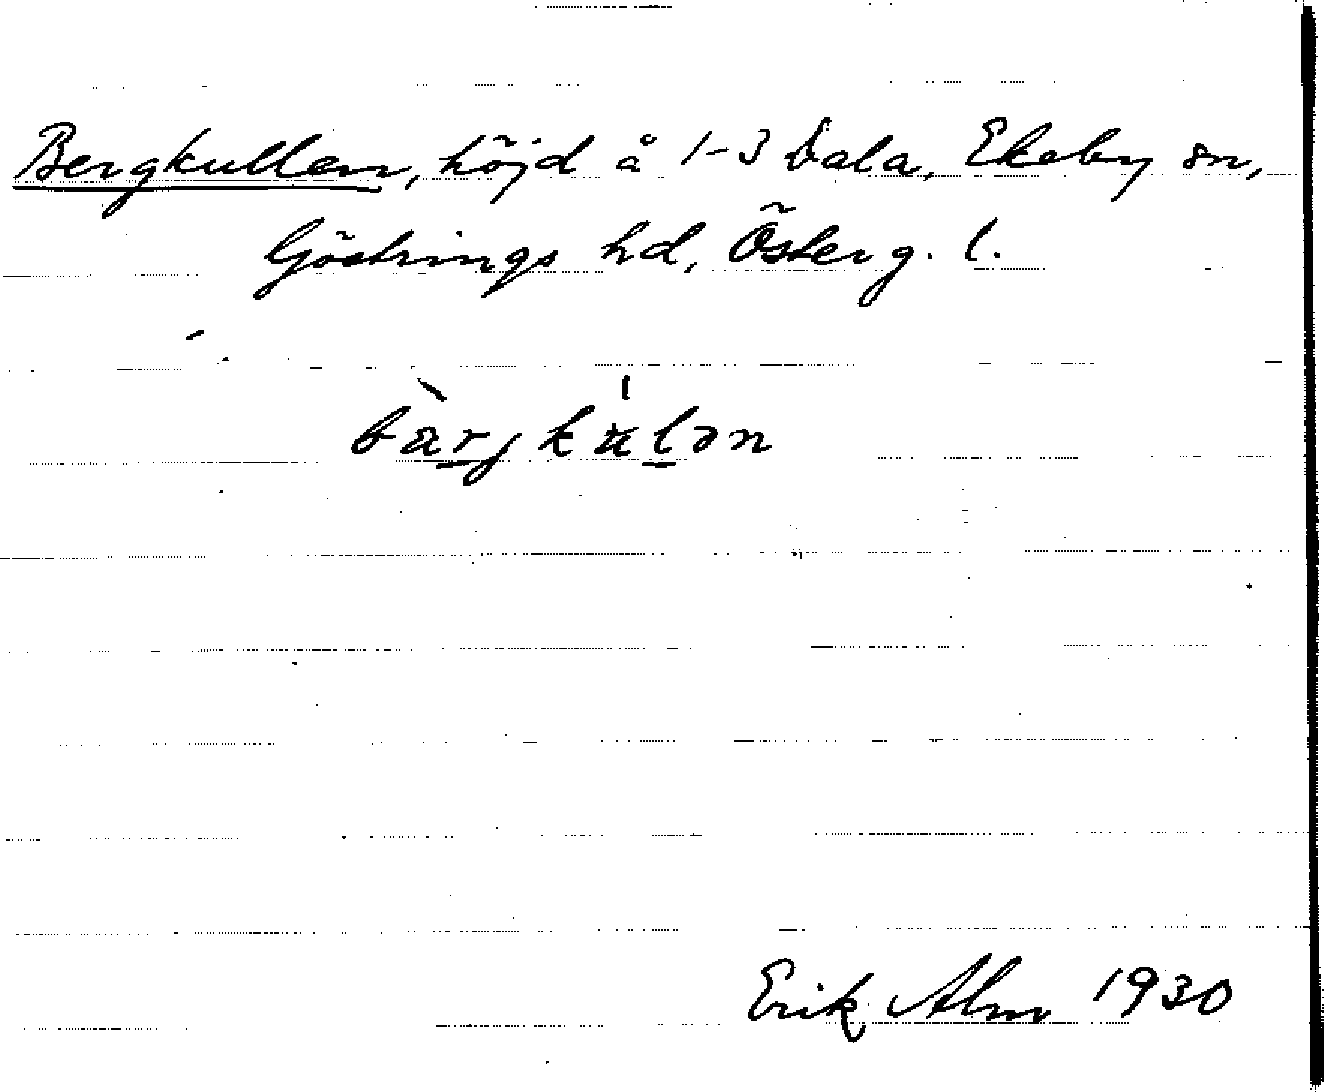 Bergkullen, höjd å 1-3 Dala, Ekeby sn,
Göstrings hd, Österg. l.
Erik Alm 1930